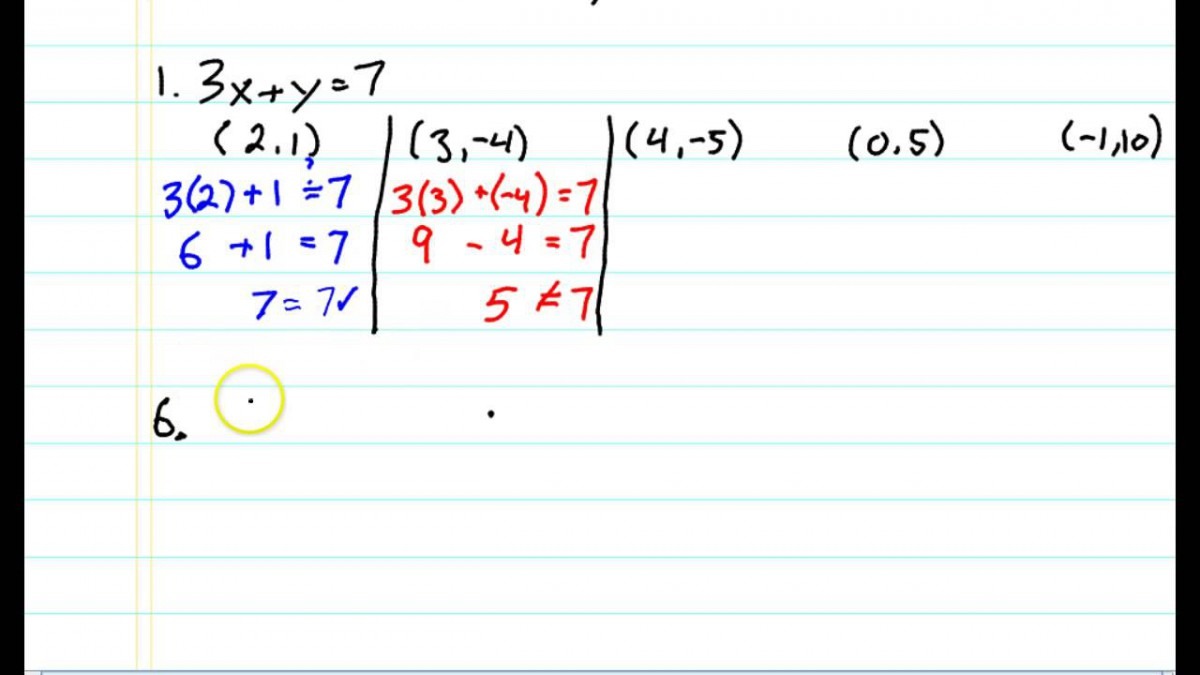 1. 3x+y=7
(2,1) (3,-4) (4,-5) (0,5) (-1,10)
3(2)+1 ≟ 7 3(3)+(-4)=7
6 +1 =7 9 - 4 =7
7=7✓ 5 ≠ 7
6.